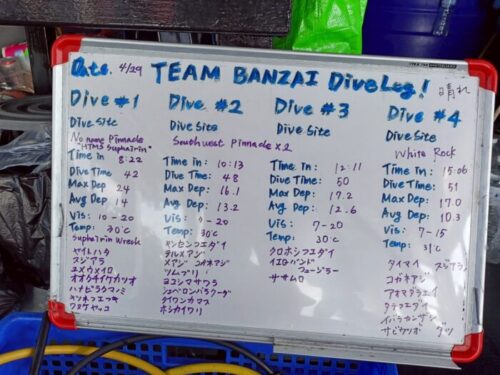 Date. 4/29 TEAM BANZAI Dive Log! 晴れ
Dive #1
Dive Site
No name Pinnacle
"HTMS Suphairin"
Time in 8:22
Dive Time 42
Max Dep 24
Avg Dep 14
Vis: 10-20
Temp: 30℃
Suphairin Wreck
スジアラ
ユメウメイロ
オオクチイケカツオ
ハナビラクマノミ
Dive #2
Dive Site
Southwest Pinnacle x2
Time in: 10:13
Dive Time: 48
Max Dep: 16.1
Avg Dep: 13.2
Vis: -20
Temp: 30℃
センセンフエダイ
メアジ コガネアジ
ツムブリ
ヨコシマサワラ
シェベロンバラクーダ
タイワンカマス
ホシカイワリ
Dive #3
Dive Site
Time in: 12:11
Dive Time: 50
Max Dep: 17.2
Avg Dep: 12.6
Vis: 7-20
Temp: 30℃
クロホシフエダイ
イエローバンド
フュージラー
ササムロ
Dive #4
Dive Site
White Rock
Time in: 15:06
Dive Time: 51
Max Dep: 17.0
Avg Dep: 10.3
Vis: 7-15
Temp: 31℃
タイマイ スジアラ
コガネアジ
イバラカンザシ